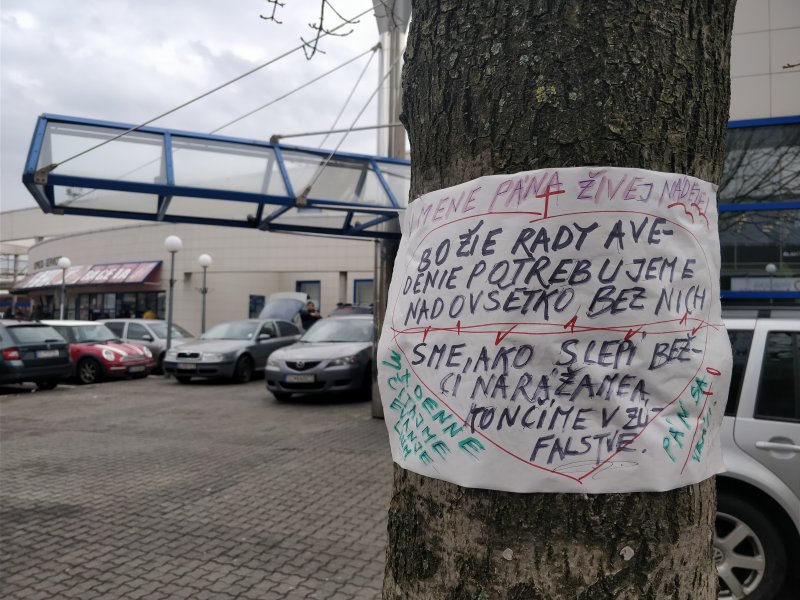 V MENE PANA ŽIVEJ NADEJE
BOŽIE RADY A VE-
DENIE POTREBUJEME
NADOVŠETKO BEZ NICH
SME, AKO SLEPÍ BEŽ-
CI NARÁŽAME A
KONČÍME V ZÚ-
FALSTVE.
DENNE
PÁN SA